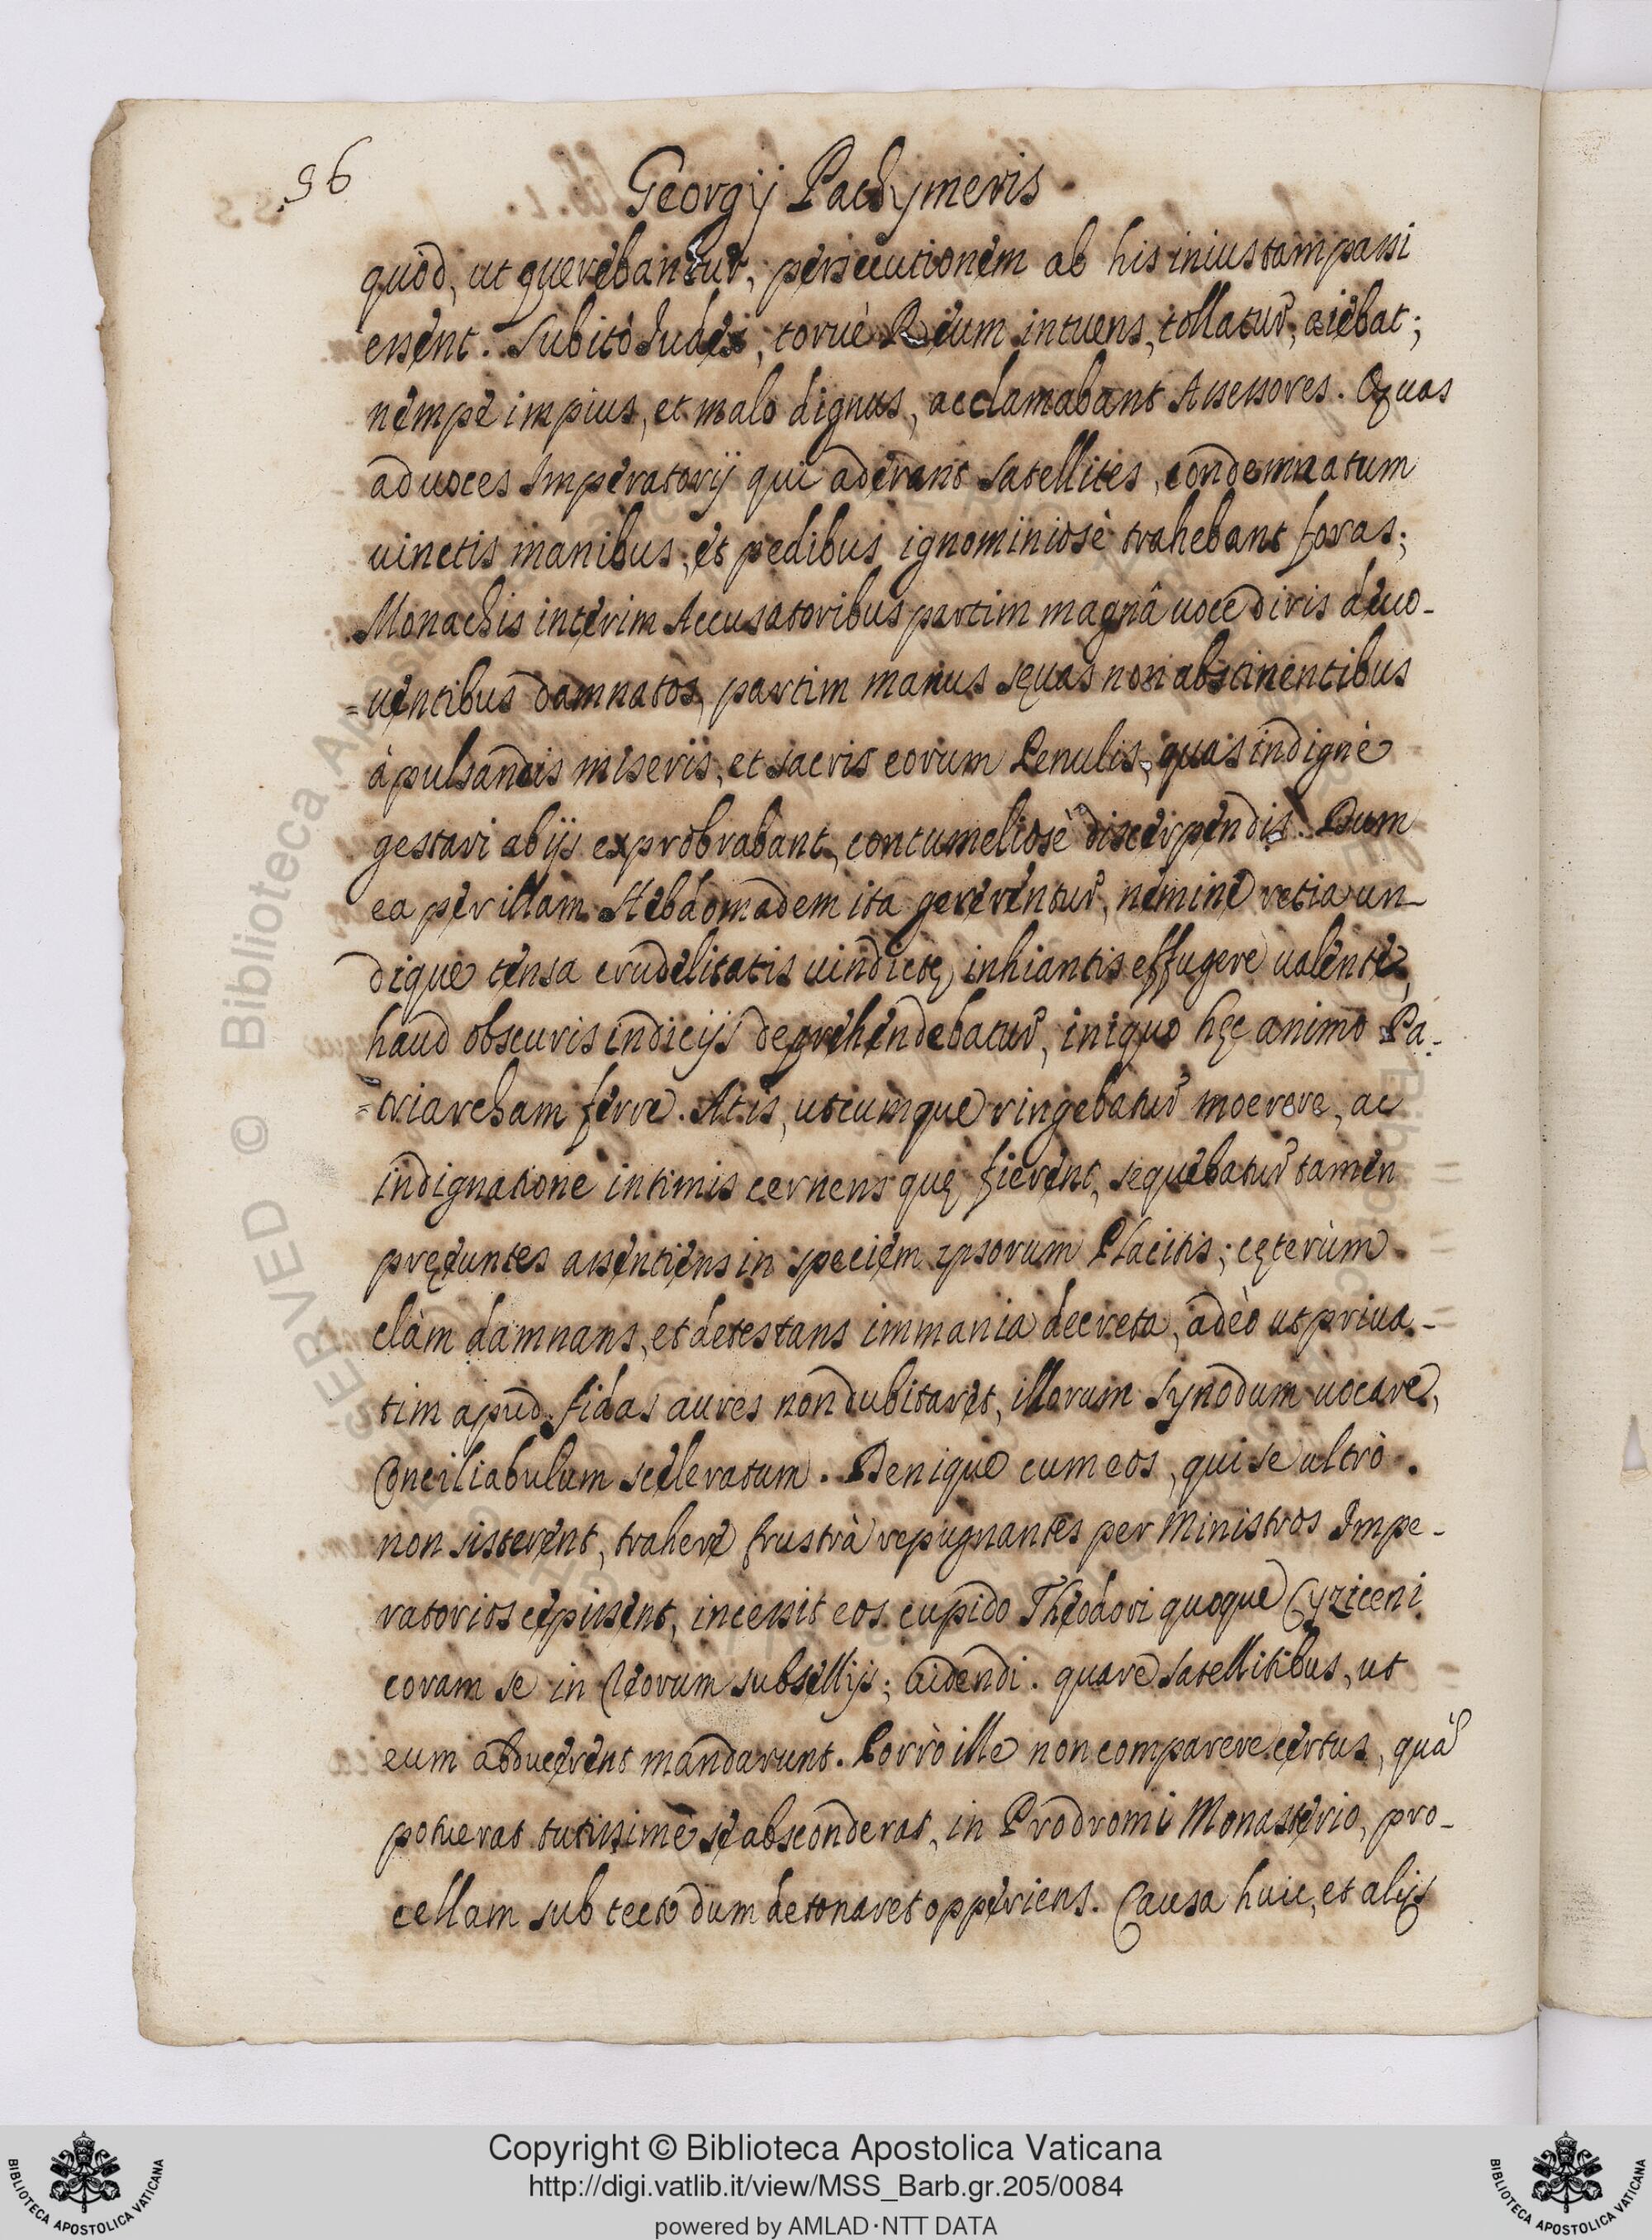 96
Georgij Pachymeris
quòd, ut querebantur, persecutionem ab his iniustam passi
essent. Subitò Iudex, toruè Reum intuens, tollatur, aiebat;
nempe impius, et malo dignus, acclamabant Assessores. Quas
ad uoces Imperatorij qui aderant satellites, condemnatum
uinctis manibus, et pedibus ignominiosè trahebant foras;
Monachis interim Accusatoribus partim magnâ uoce diris deuo-
=uentibus damnatos, partim manus sęuas non abstinentibus
à pulsandis miseris, et sacris eorum Penulis, quas indignè
gestari ab ijs exprobrabant, contumeliosè discerpendis. Dum
ea per illam Hebdomadem ita gererentur, nemine retia un-
dique tensa crudelitatis uindictę inhiantis effugere ualente,
haud obscuris indicijs deprehendebatur, iniquo hęc animo Pa-
=triarcham ferre. At is, utcumque ringebatur moerore, ac
indignatione intimis cernens quę fierent, sequebatur tamen
pręeuntes assentiens in speciem ipsorum Placitis; cęterùm
clàm damnans, et detestans immania decreta, adeò ut priua-
tim apud fidas aures non dubitaret, illorum Synodum uocare,
Conciliabulum sceleratum. Denique cum eos, qui se ultrò
non sisterent, trahere frustrà repugnantes per Ministros Impe-
ratorios cępissent, incessit eos cupido Theodori quoque Cyziceni
coram se in Reorum subsellijs; uidendi. quare satellitibus, ut
eum adducerent mandarunt. Porrò ille non comparere certus, quà
potuerat tutissimè se absconderat, in Prodromi Monasterio, pro-
cellam sub tecto dum detonaret opperiens. Causa huic, et alijs
Copyright © Biblioteca Apostolica Vaticana
http://digi.vatlib.it/view/MSS_Barb.gr.205/0084
powered by AMLAD·NTT DATA
BIBLIOTECA APOSTOLICA VATICANA
BIBLIOTECA APOSTOLICA VATICANA